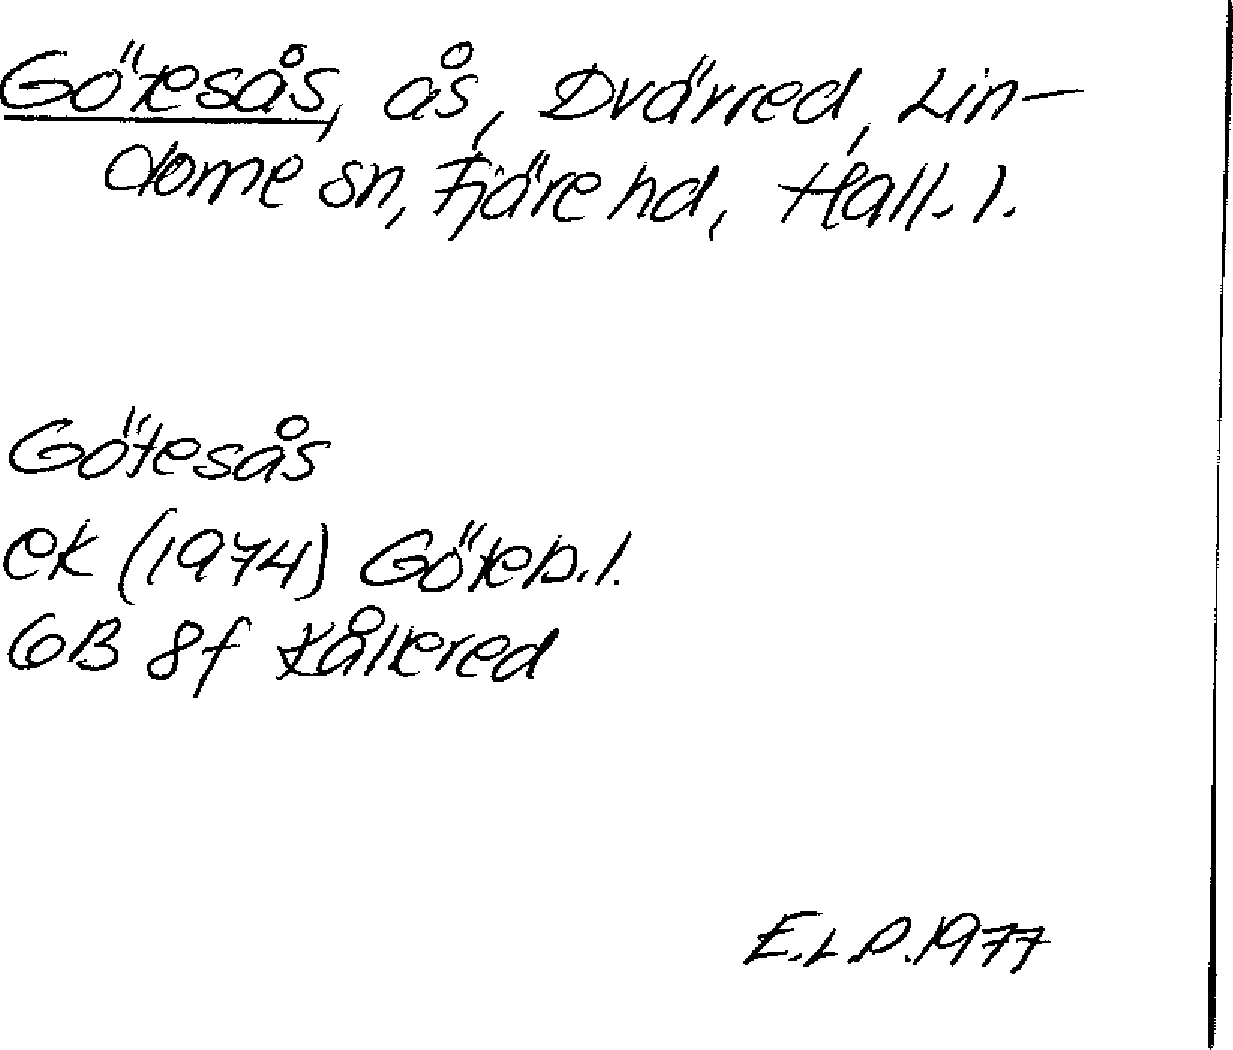 Götesås, ås, Dvärred, Lin-
dome sn, Fjäre hd, Hall. l.
Götesås
ek (1974) Göteb. l.
6B 8f Kållered
E.L.P. 1977